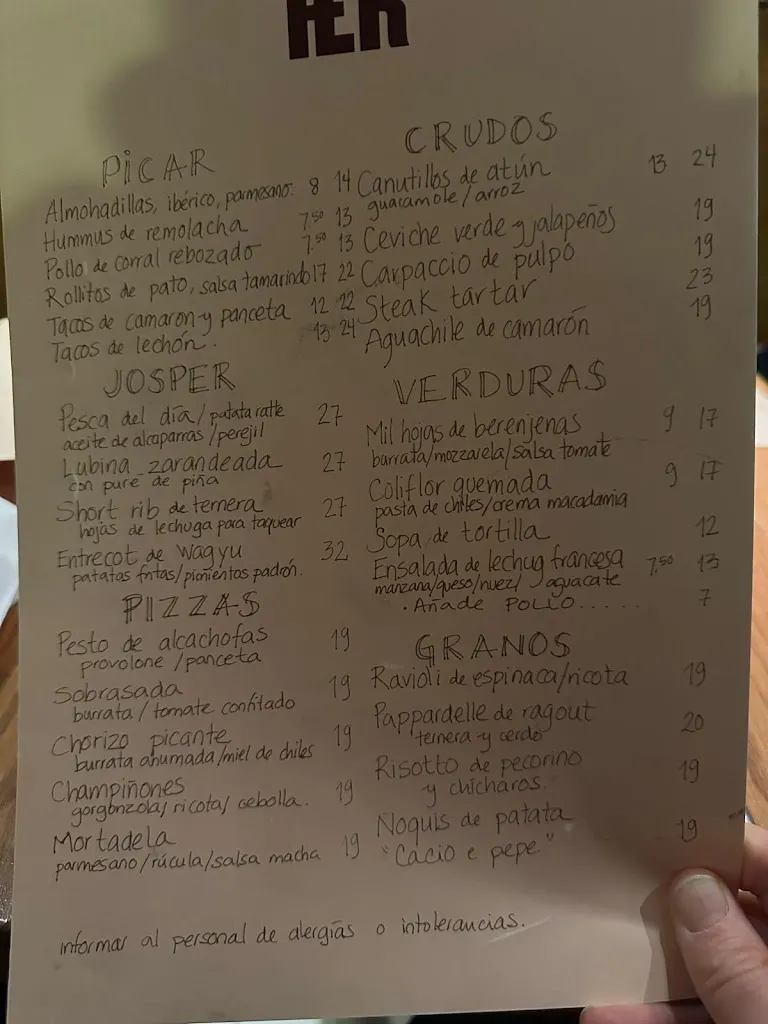 PiCAR
Almohadillas, ibérico, parmesano. 8 14
Hummus de remolacha 7,50 13
Pollo de corral rebozado 7,50 13
Rollitos de pato, salsa tamarindo 17 22
Tacos de camaron y panceta 12 22
Tacos de lechón. 13 24
JOSPER
Pesca del día/patata ratte 27
aceite de alcaparras/perejil
Lubina zarandeada 27
con pure de piña
Short rib de ternera 27
hojas de lechuga para taquear
Entrecot de Wagyu 32
patatas fritas/pimientos padrón.
PIZZAS
Pesto de alcachofas 19
provolone/panceta
Sobrasada 19
burrata/tomate confitado
Chorizo picante 19
burrata ahumada/miel de chiles
Champiñones 19
gorgonzola/ricota/cebolla.
Mortadela
parmesano/rúcula/salsa macha 19
CRUDOS
Canutillos de atún 13 24
guacamole/arroz
Ceviche verde y jalapeños 19
Carpaccio de pulpo 19
Steak tartar 23
Aguachile de camarón 19
VERDURAS
Mil hojas de berenjenas 9 17
burrata/mozzarela/salsa tomate
Coliflor quemada 9 17
pasta de chiles/crema macadamia
Sopa de tortilla 12
Ensalada de lechug francesa 7,50 13
manzana/queso/nuez/aguacate
· Añade POLLO...... 7
GRANOS
Ravioli de espinaca/ricota 19
Pappardelle de ragout 20
ternera y cerdo
Risotto de pecorino 19
y chícharos.
Ñoquis de patata 19
"Cacio e pepe"
informar al personal de alergías o intolerancias.